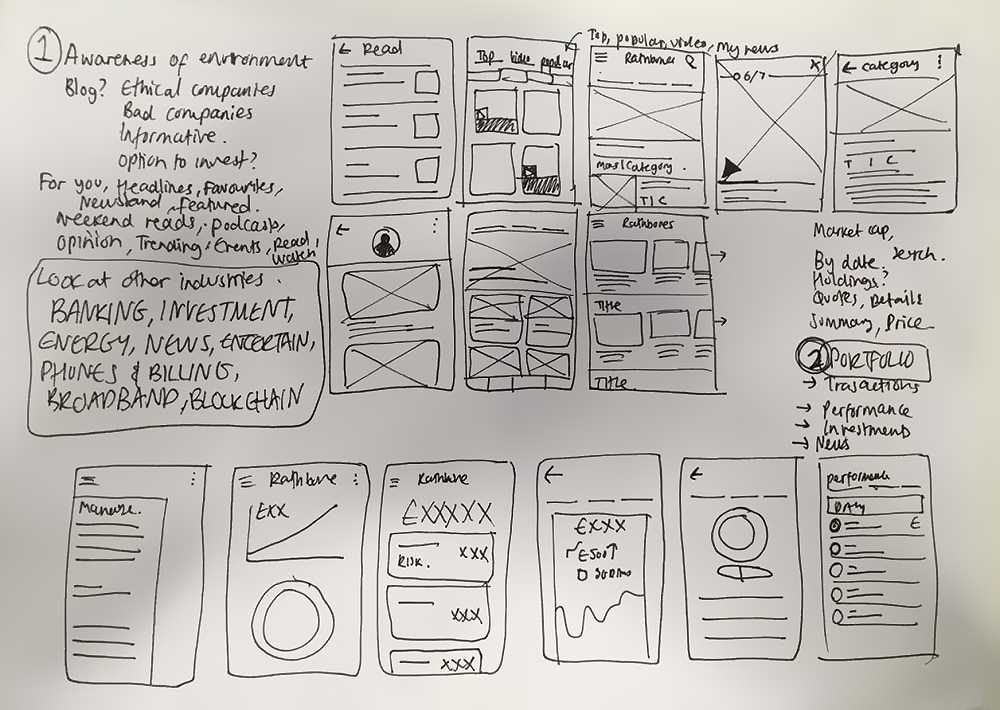 1 Awareness of environment
Blog? Ethical companies
Bad companies
Informative.
Option to invest?
For you, Headlines, Favourites,
Newsstand, featured.
Weekend reads, Podcasts,
Opinion, Trending, Events, Read,
Watch
Look at other industries.
BANKING, INVESTMENT,
ENERGY, NEWS, ENTERTAIN,
PHONES & BILLING,
BROADBAND, BLOCKCHAIN
← Read
Top, popular, video, My news
Top video popular
Rathbones
Most Category.
T I C
6/7 X
← Category
T I C
Rathbones
Title
TITLE.
Market cap,
By date, Search.
Holdings?
Quotes, Details
Summary, Price
2 PORTFOLIO
→ Trasactions
→ Performance
→ Investments
→ News
Manage.
Rathbone
£XX
Rathbone
£XXXXX
XXX
RISK.
XXX
XXX
£XXX
£500↑
Performance
DAy
£